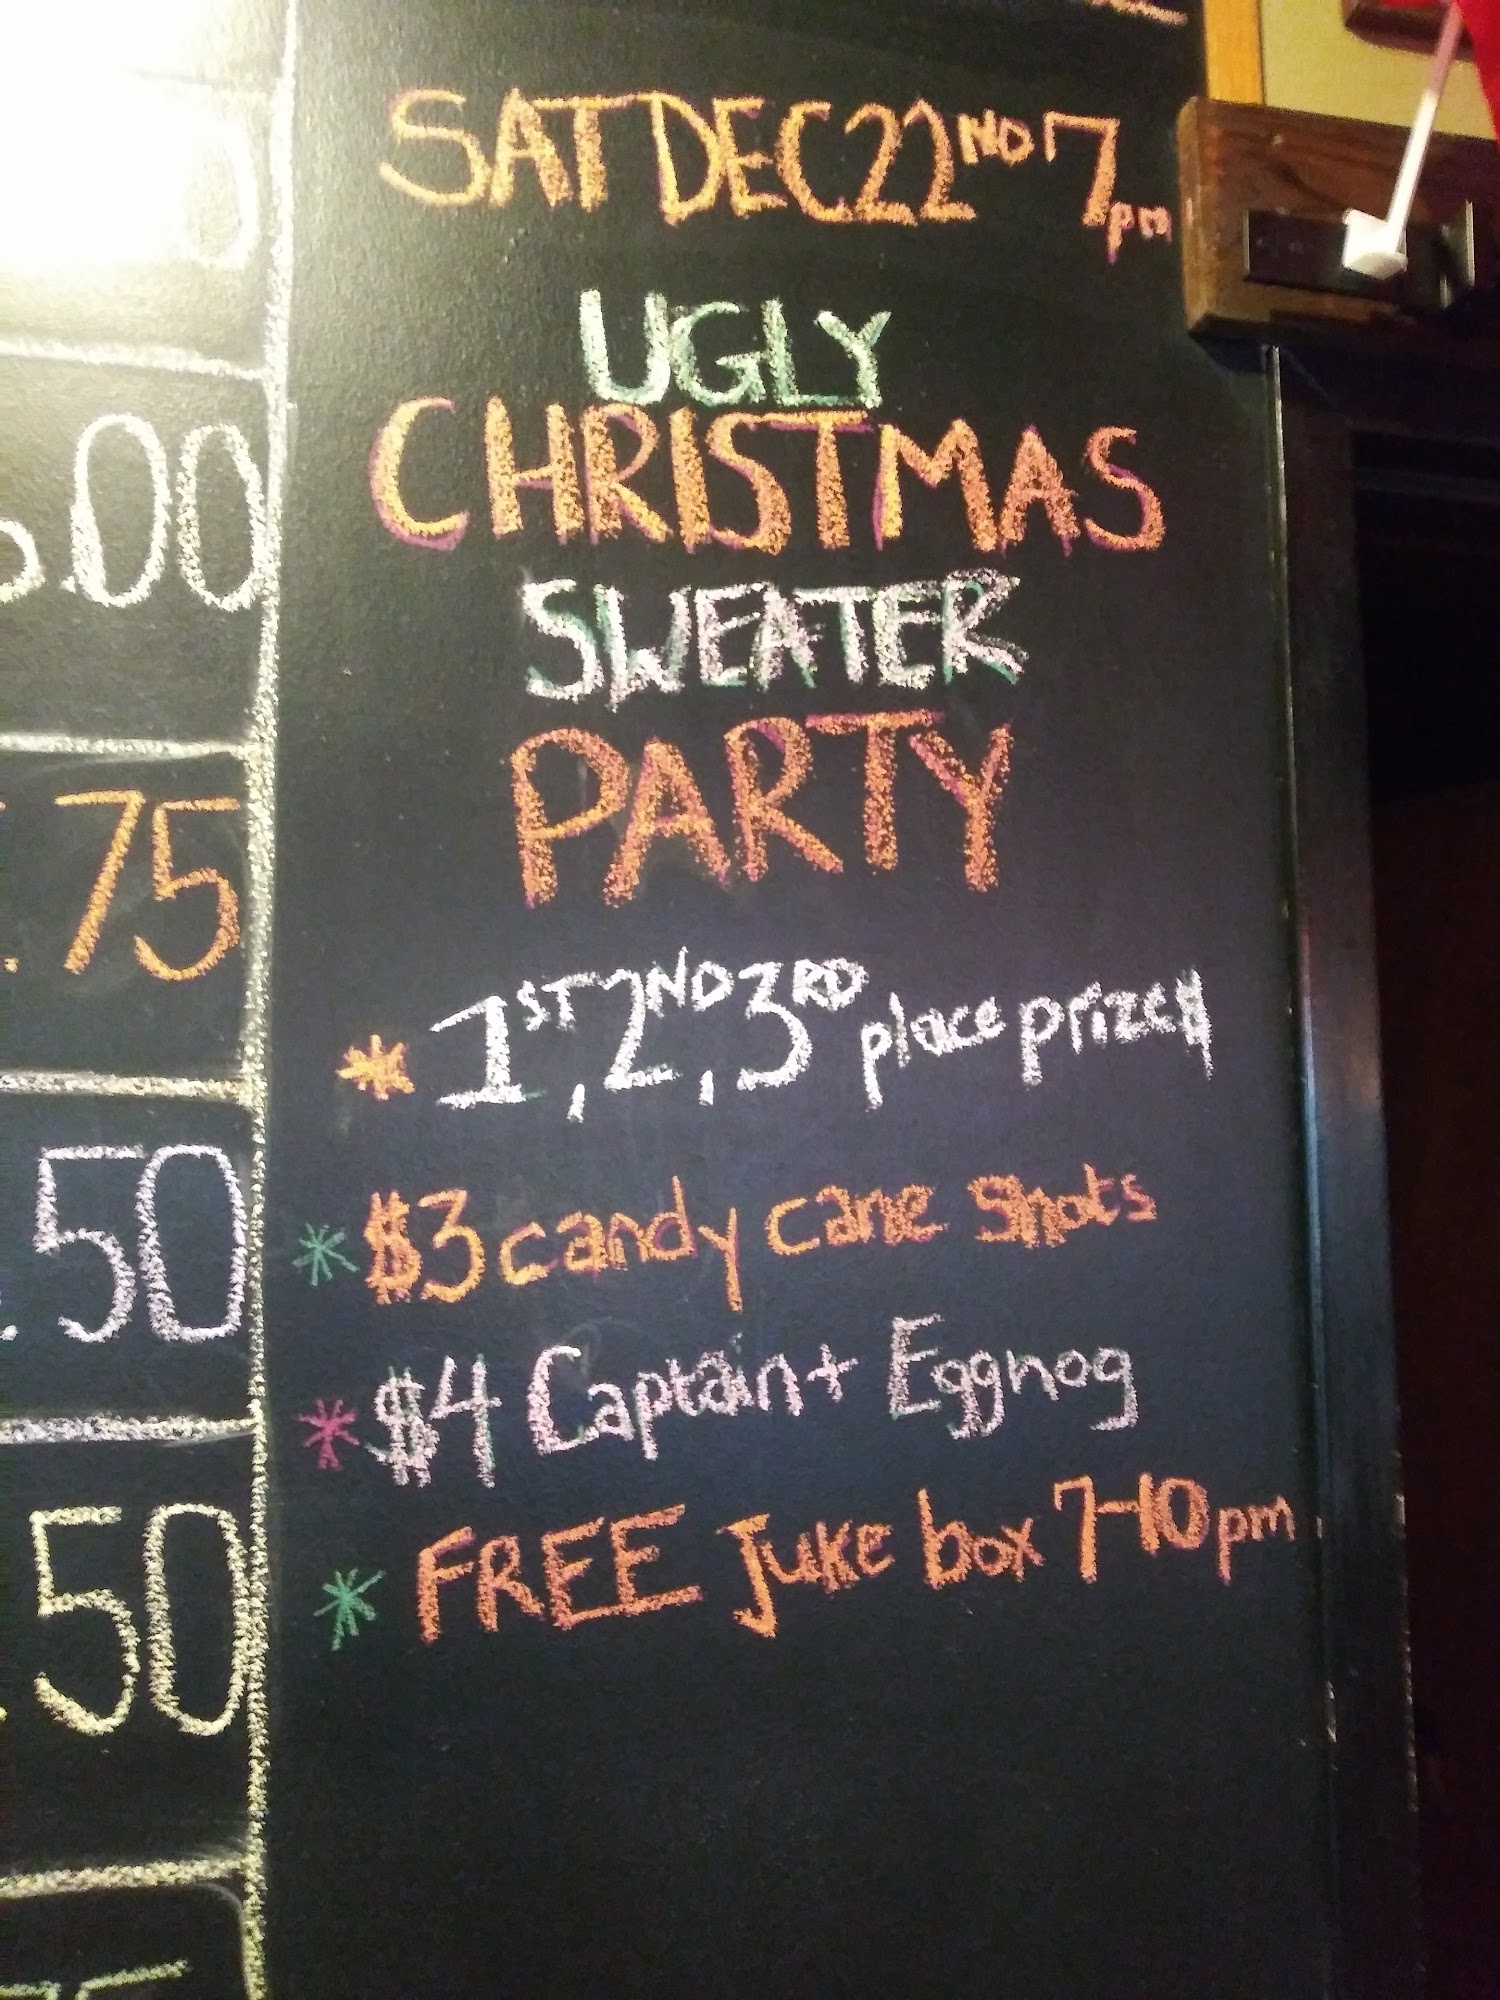 SAT DEC 22ND 7pm
UGLY
CHRISTMAS
SWEATER
PARTY
* 1ST, 2ND, 3RD place prize$
* $3 candy cane shots
* $4 Captain + Eggnog
* FREE Juke box 7-10pm
.00
.75
.50
.50